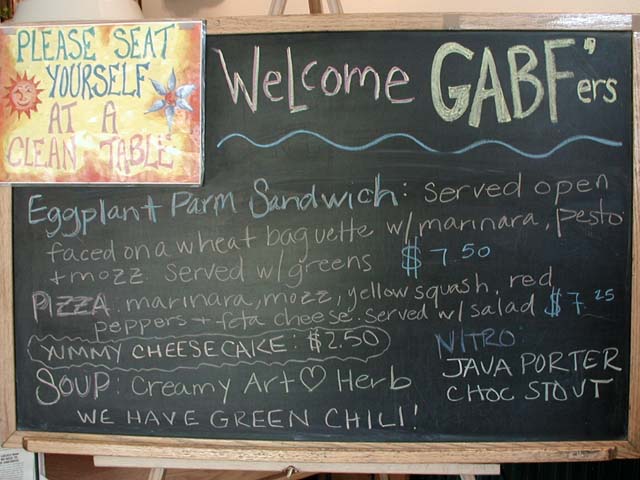 PLEASE SEAT
YOURSELF
AT A
CLEAN TABLE
Welcome GABF"ers
Eggplant Parm Sandwich: served open
faced on a wheat baguette w/ marinara, pesto
+ mozz served w/ greens $7.50
PIZZA: marinara, mozz, yellow squash, red
peppers + feta cheese. served w/ salad $7.25
YUMMY CHEESECAKE: $2.50
SOUP: Creamy Art♡ Herb
WE HAVE GREEN CHILI!
NITRO:
JAVA PORTER
CHOC STOUT